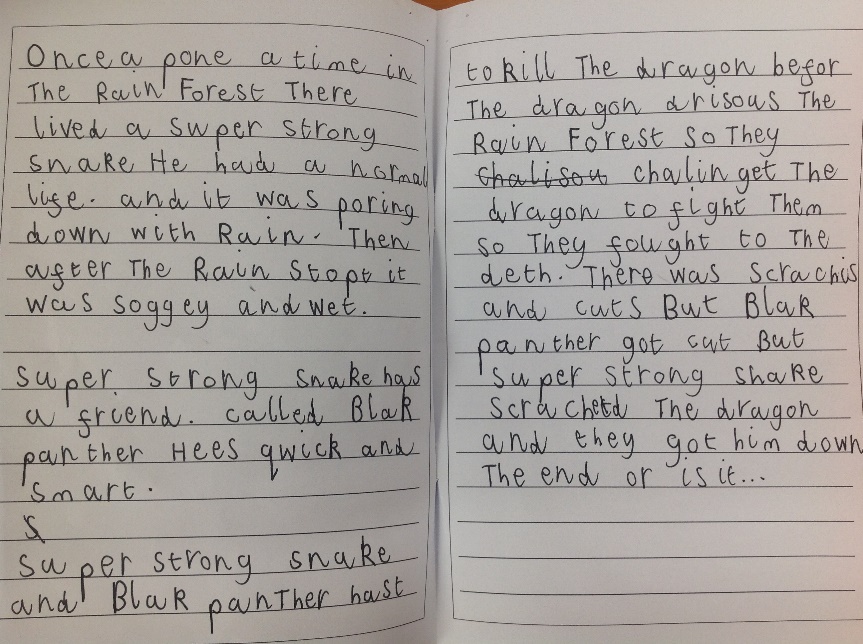 Once a pone a time in
The Rain Forest There
lived a super strong
snake He had a normal
life. and it was poring
down with Rain. Then
after The Rain Stopt it
was soggey and wet.
super strong snake has
a friend. called Blak
panther Hees qwick and
smart.
S
super strong snake
and Blak panTher hast
to kill The dragon befor
The dragon drisous The
Rain Forest So They
chalisou chalin get The
dragon to fight Them
so They fought to The
deth. There was Scrachis
and cuts But Blak
panther got cut But
super strong snake
scrached The dragon
and they got him down
The end or is it...